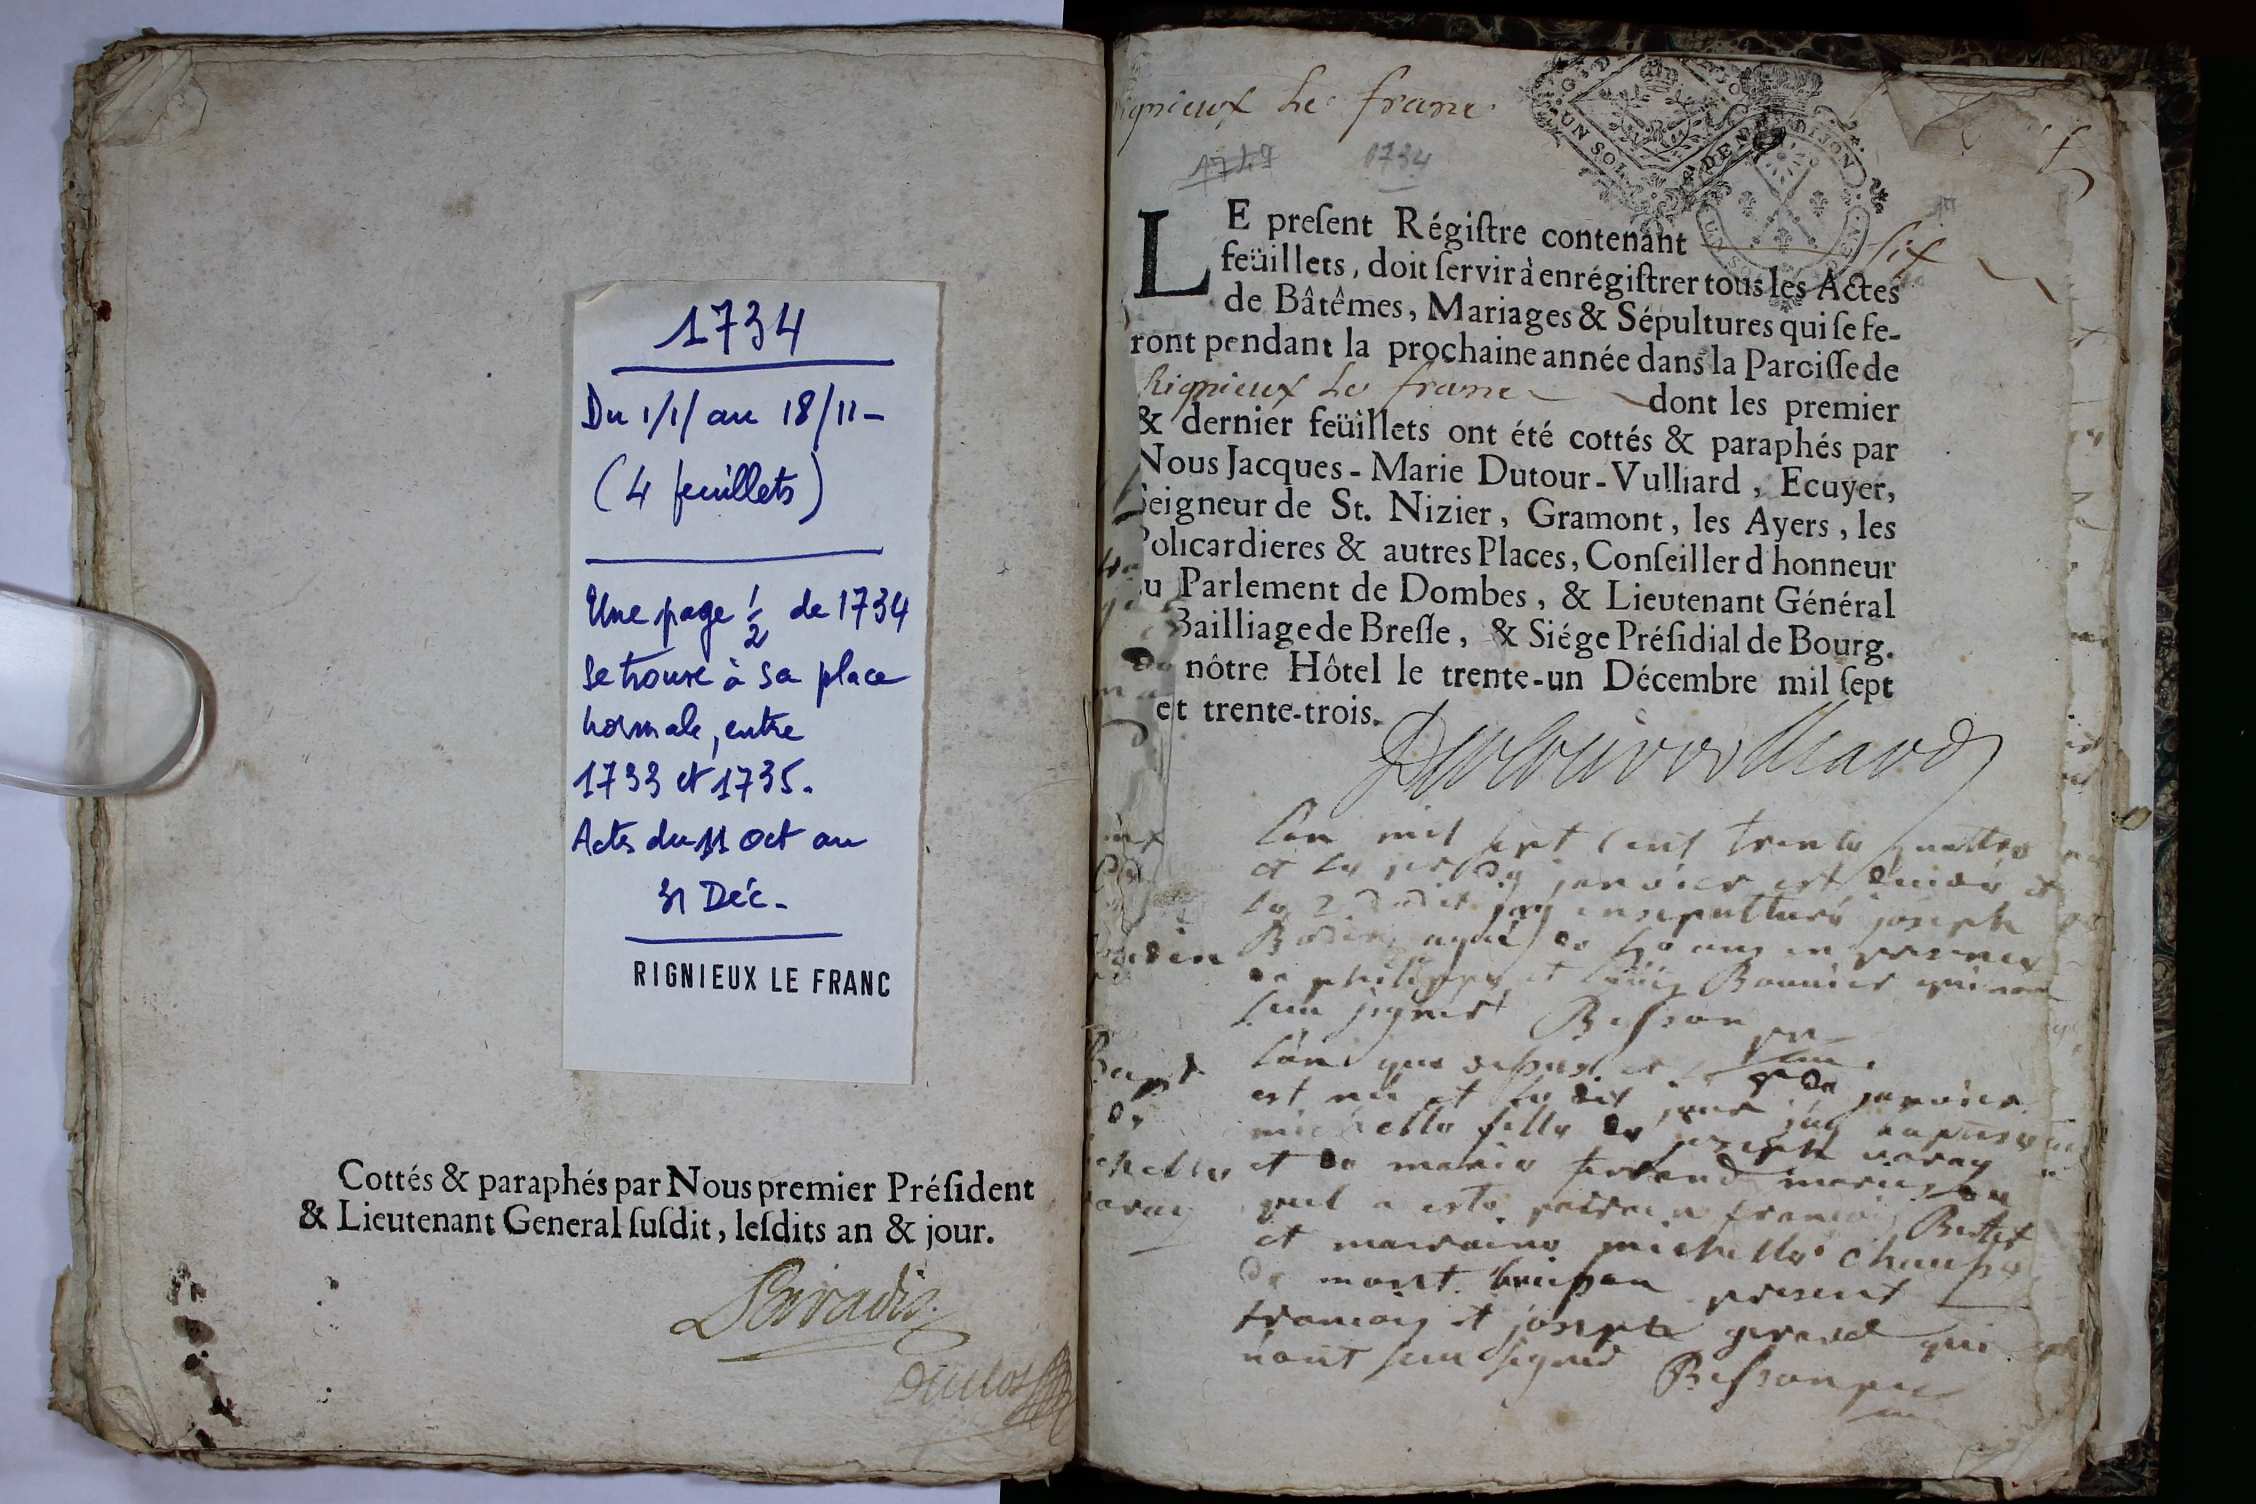 1734
Du 1/1/ au 18/11-
(4 feuillets)
Une page 1/2 de 1734
se trouve à sa place
normale, entre
1733 et 1735.
Actes du 11 Oct au
31 Déc.
RIGNIEUX LE FRANC
Cottés & paraphés par Nous premier Préſident
& Lieutenant General ſuſdit, leſdits an & jour.
Duclos
ignieux Le franc
1734
UN SOL
DIJON
LE preſent Régiſtre contenant six
feüillets, doit ſervir à enrégiſtrer tous les Actes
de Bâtêmes, Mariages & Sépultures qui ſe fe-
ront pendant la prochaine année dans la Paroiſſe de
Rignieux Le franc dont les premier
& dernier feüillets ont été cottés & paraphés par
Nous Jacques-Marie Dutour-Vulliard, Ecuyer,
Seigneur de St. Nizier, Gramont, les Ayers, les
Policardieres & autres Places, Conſeiller d honneur
au Parlement de Dombes, & Lieutenant Général
Bailliage de Breſſe, & Siége Préſidial de Bourg.
nôtre Hôtel le trente-un Décembre mil ſept
et trente-trois.
Dutour vulliard
Lan mil sept cent trente quattre
et le janvier est et
le 2 dudit jay ensepulturé joseph
agé de ans en presence
de philippe et Bonnier qui
sceu signer Besson
Lan que dessus et janvier
est né et le dit jour jay
michelle fille de joseph varay
et de marie mariez
quel a esté parrain francois
et marraine michelle
de mont present
francois et joseph qui
nont sceu signer Besson